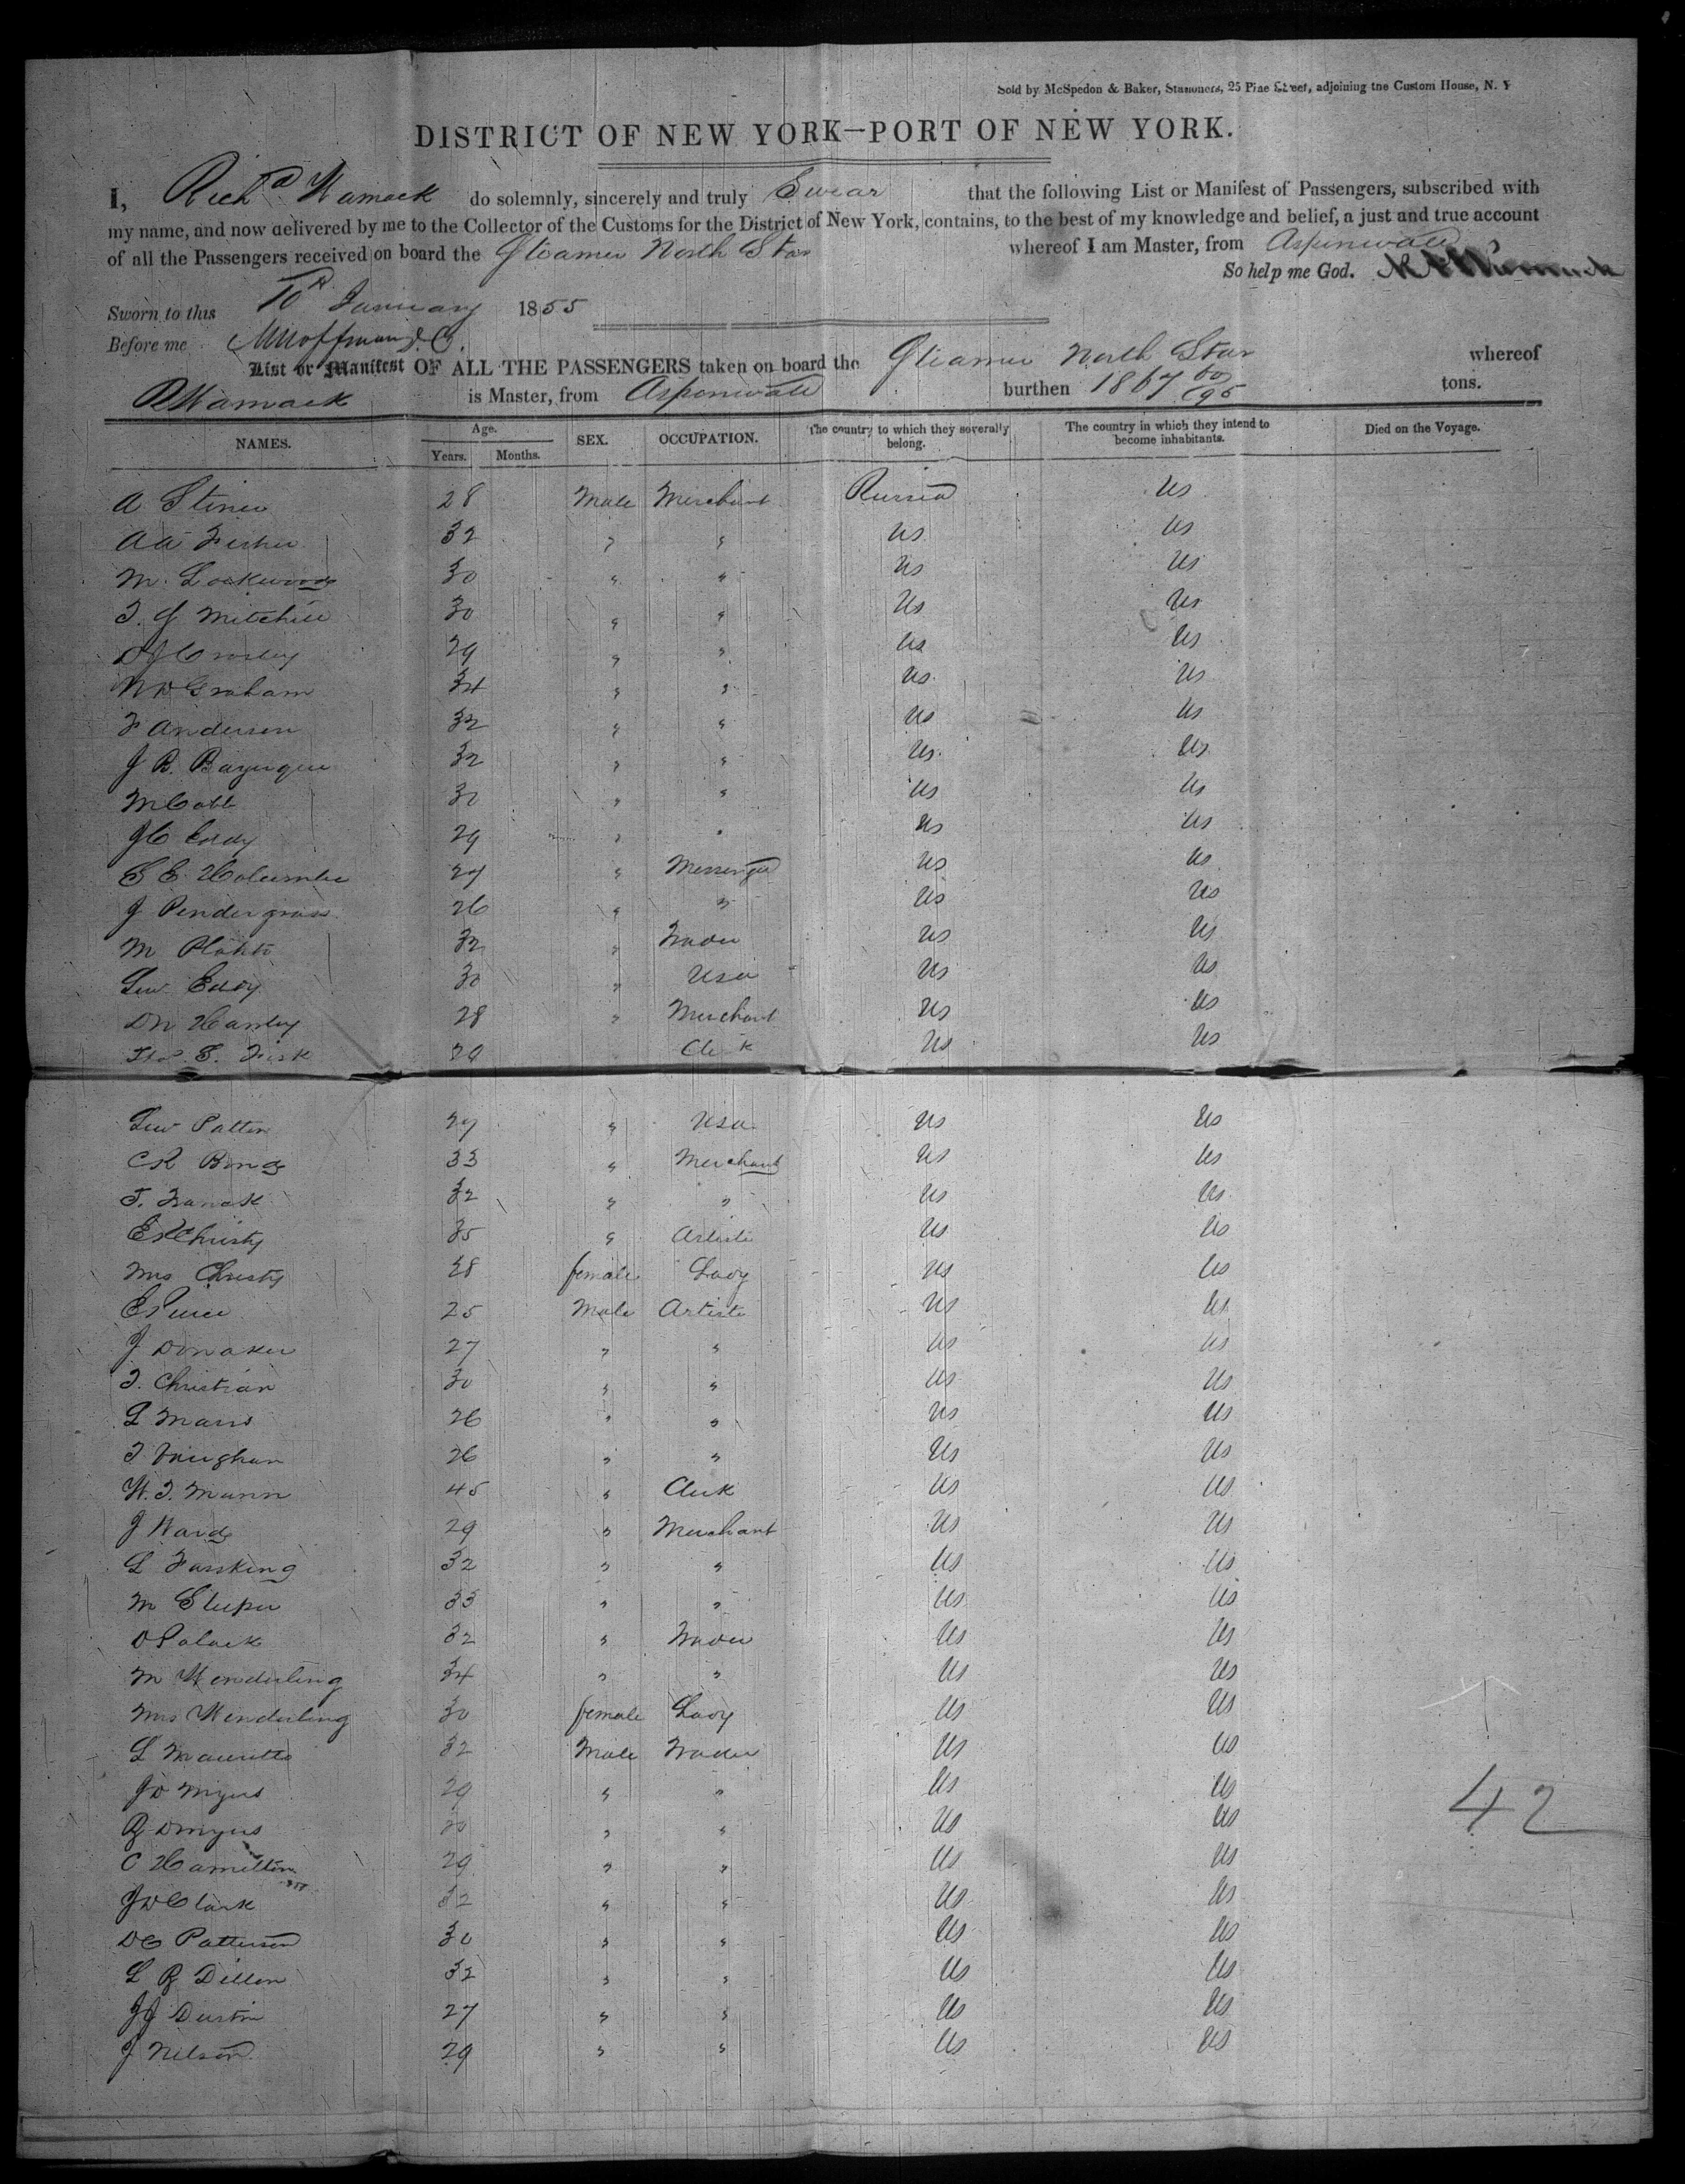 Sold by McSpedon & Baker, Stationers, 25 Pine Street, adjoining the Custom House, N. Y
DISTRICT OF NEW YORK—PORT OF NEW YORK.
I, Richd Wamack do solemnly, sincerely and truly Swear that the following List or Manifest of Passengers, subscribed with
my name, and now delivered by me to the Collector of the Customs for the District of New York, contains, to the best of my knowledge and belief, a just and true account
of all the Passengers received on board the Steamer North Star whereof I am Master, from Aspinwall
So help me God.
Sworn to this 10th January 1855
Before me
List or Manifest OF ALL THE PASSENGERS taken on board the Steamer North Star whereof
R Wamack is Master, from Aspinwall burthen 1867 60/95 tons.
NAMES. Age. Years. Months. SEX. OCCUPATION. The country to which they severally belong. The country in which they intend to become inhabitants. Died on the Voyage.
A Stiner 28 Male Merchant Russia Us
AA Fisher 32 " " Us Us
M. Lockwood 30 " " Us Us
T. J Mitchill 30 " " Us Us
D J Crosby 29 " " Us Us
W D Graham 34 " " Us Us
F Anderson 32 " " Us Us
J B. 32 " " Us Us
M Cobb 30 " " Us Us
J C Eddy 29 " " Us Us
S E Holcumbe 27 " Messenger Us Us
J Pendergrass 26 " " Us Us
M 32 " Trader Us Us
Lew Eddy 30 " Usa Us Us
D N Hanley 28 " Merchant Us Us
Thos. S. Fisk 29 Clerk Us Us
Lew Patten 27 " Usa Us Us
C R Bond 33 " Merchant Us Us
T. 32 " " Us Us
E P Christy 35 " Artiste Us Us
Mrs Christy 28 female Lady Us Us
E Pierce 25 Male Artiste Us Us
J Donaker 27 " " Us Us
T. Christian 30 " " Us Us
L Maris 26 " " Us Us
T Vaughan 26 " " Us Us
W. T. Mann 45 " Clerk Us Us
J Ward 29 " Merchant Us Us
L Fassking 32 " " Us Us
M Sleeper 33 " " Us Us
D Polack 32 " Trader Us Us
M Wenderling 34 " " Us Us
Mrs Wenderling 30 female Lady Us Us
L Mauritto 32 Male Trader Us Us
J D Myers 29 " " Us Us
R D Myers 30 " " Us Us
42
C Hamilton 29 " " Us Us
J W Clark 32 " " Us Us
D C Patterson 30 " " Us Us
L R Dillon 32 " " Us Us
J J Dustin 27 " " Us Us
J Nelson 29 " " Us Us